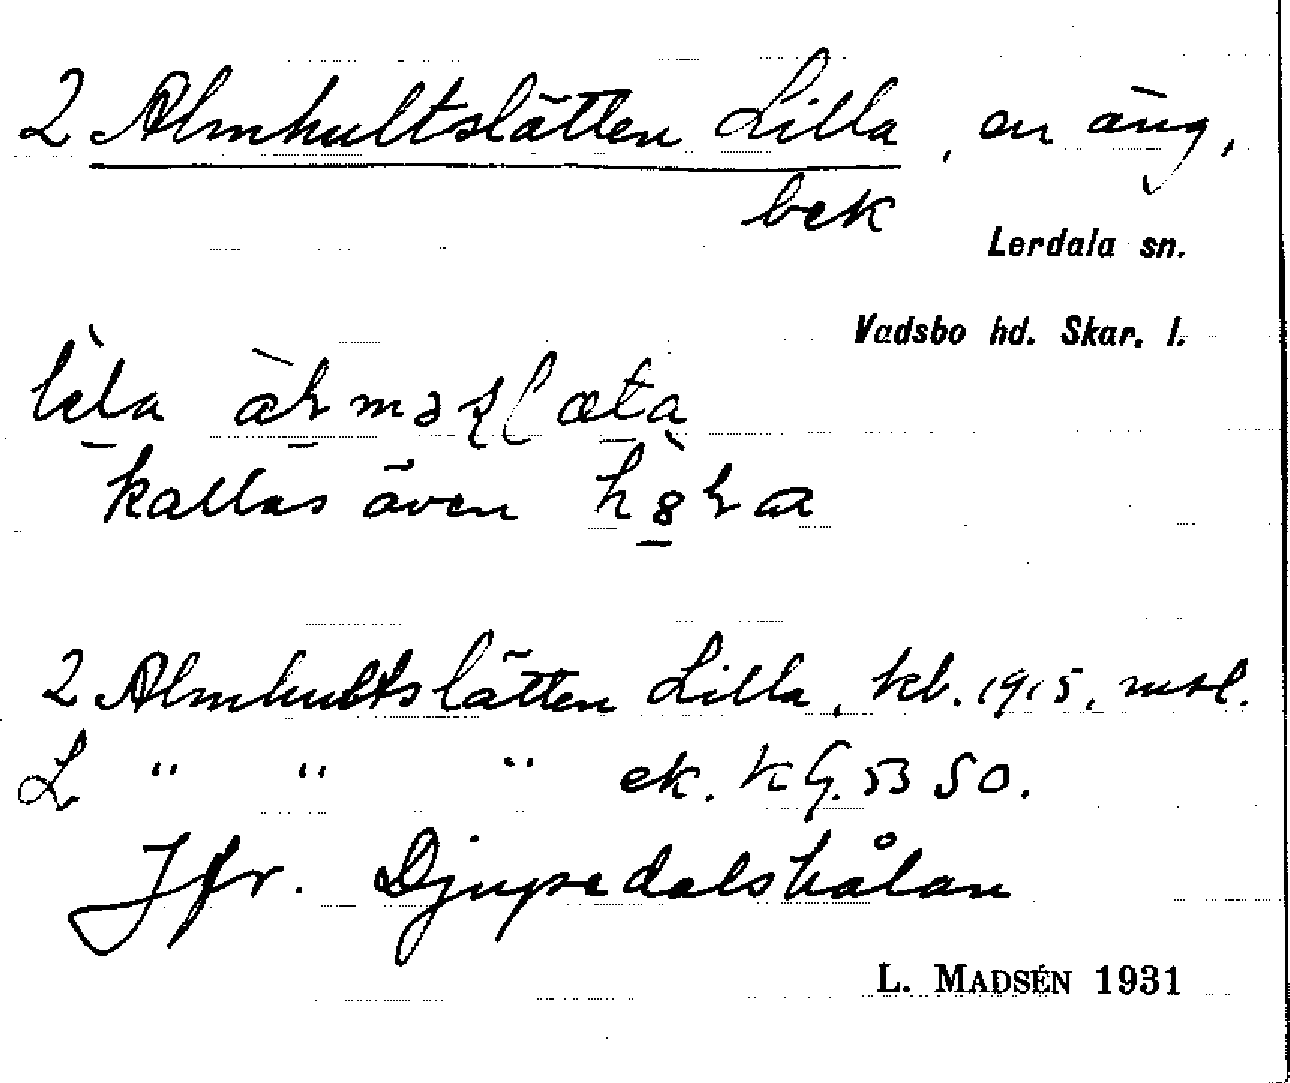 2 Almhultslätten Lilla, en äng,
bek
Lerdala sn.
Vadsbo hd. Skar. l.
kallas även
2 Almhultslätten Lilla, kb. 1915, mtl.
L " " " ek. kG. 53 50.
Jfr. Djupedalshålan
L. MADSÉN 1931